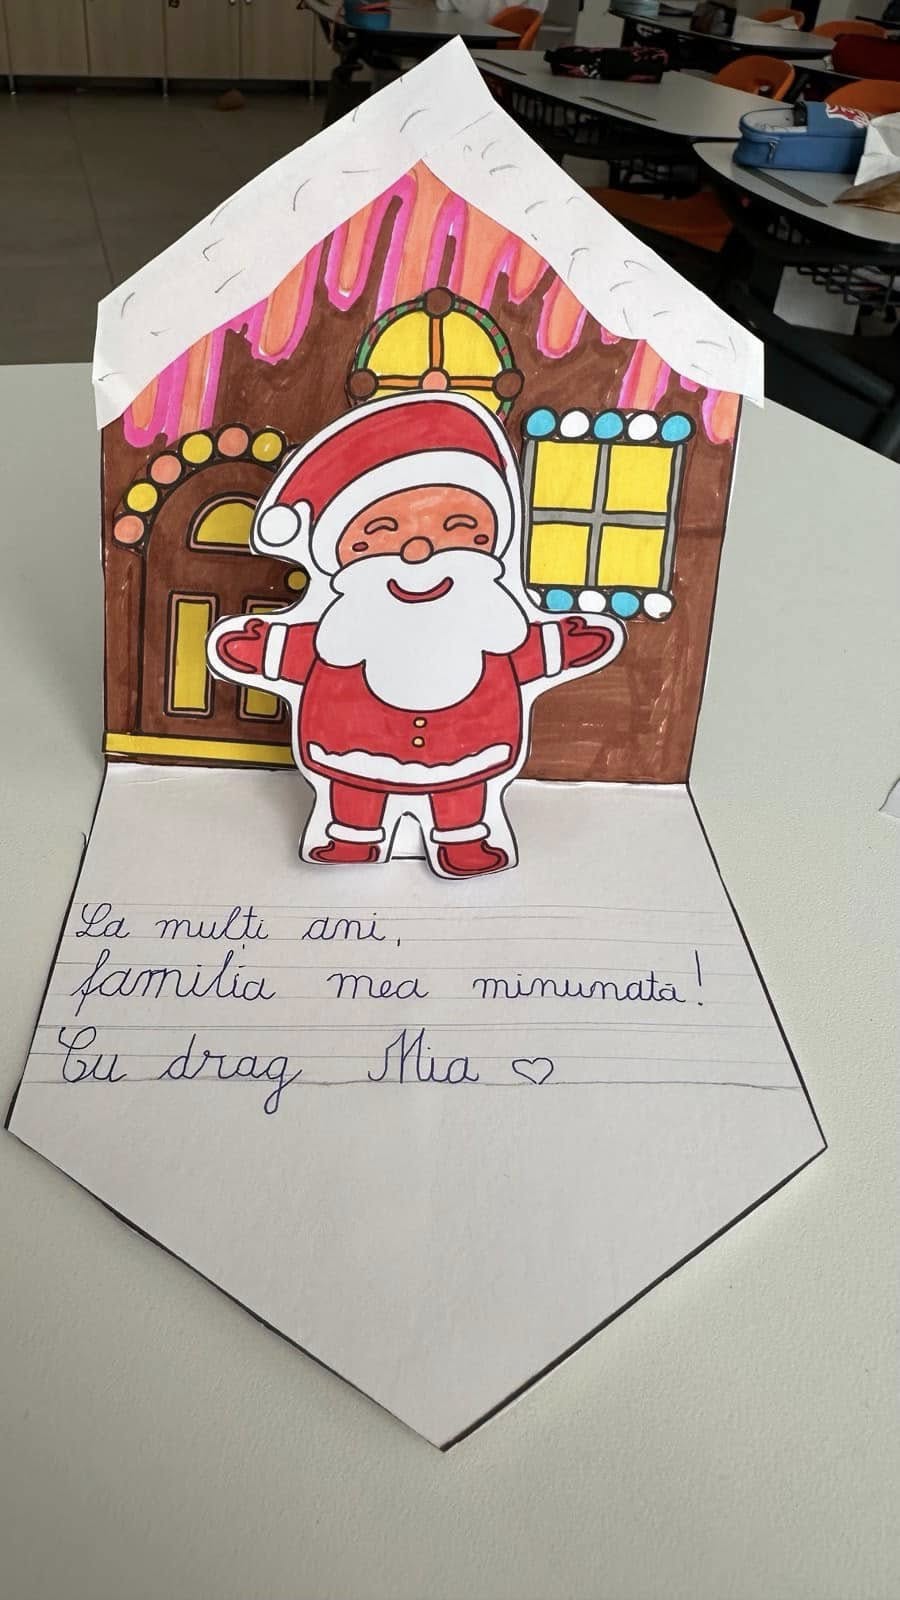 La mulți ani,
familia mea minunată!
Cu drag Mia ♡